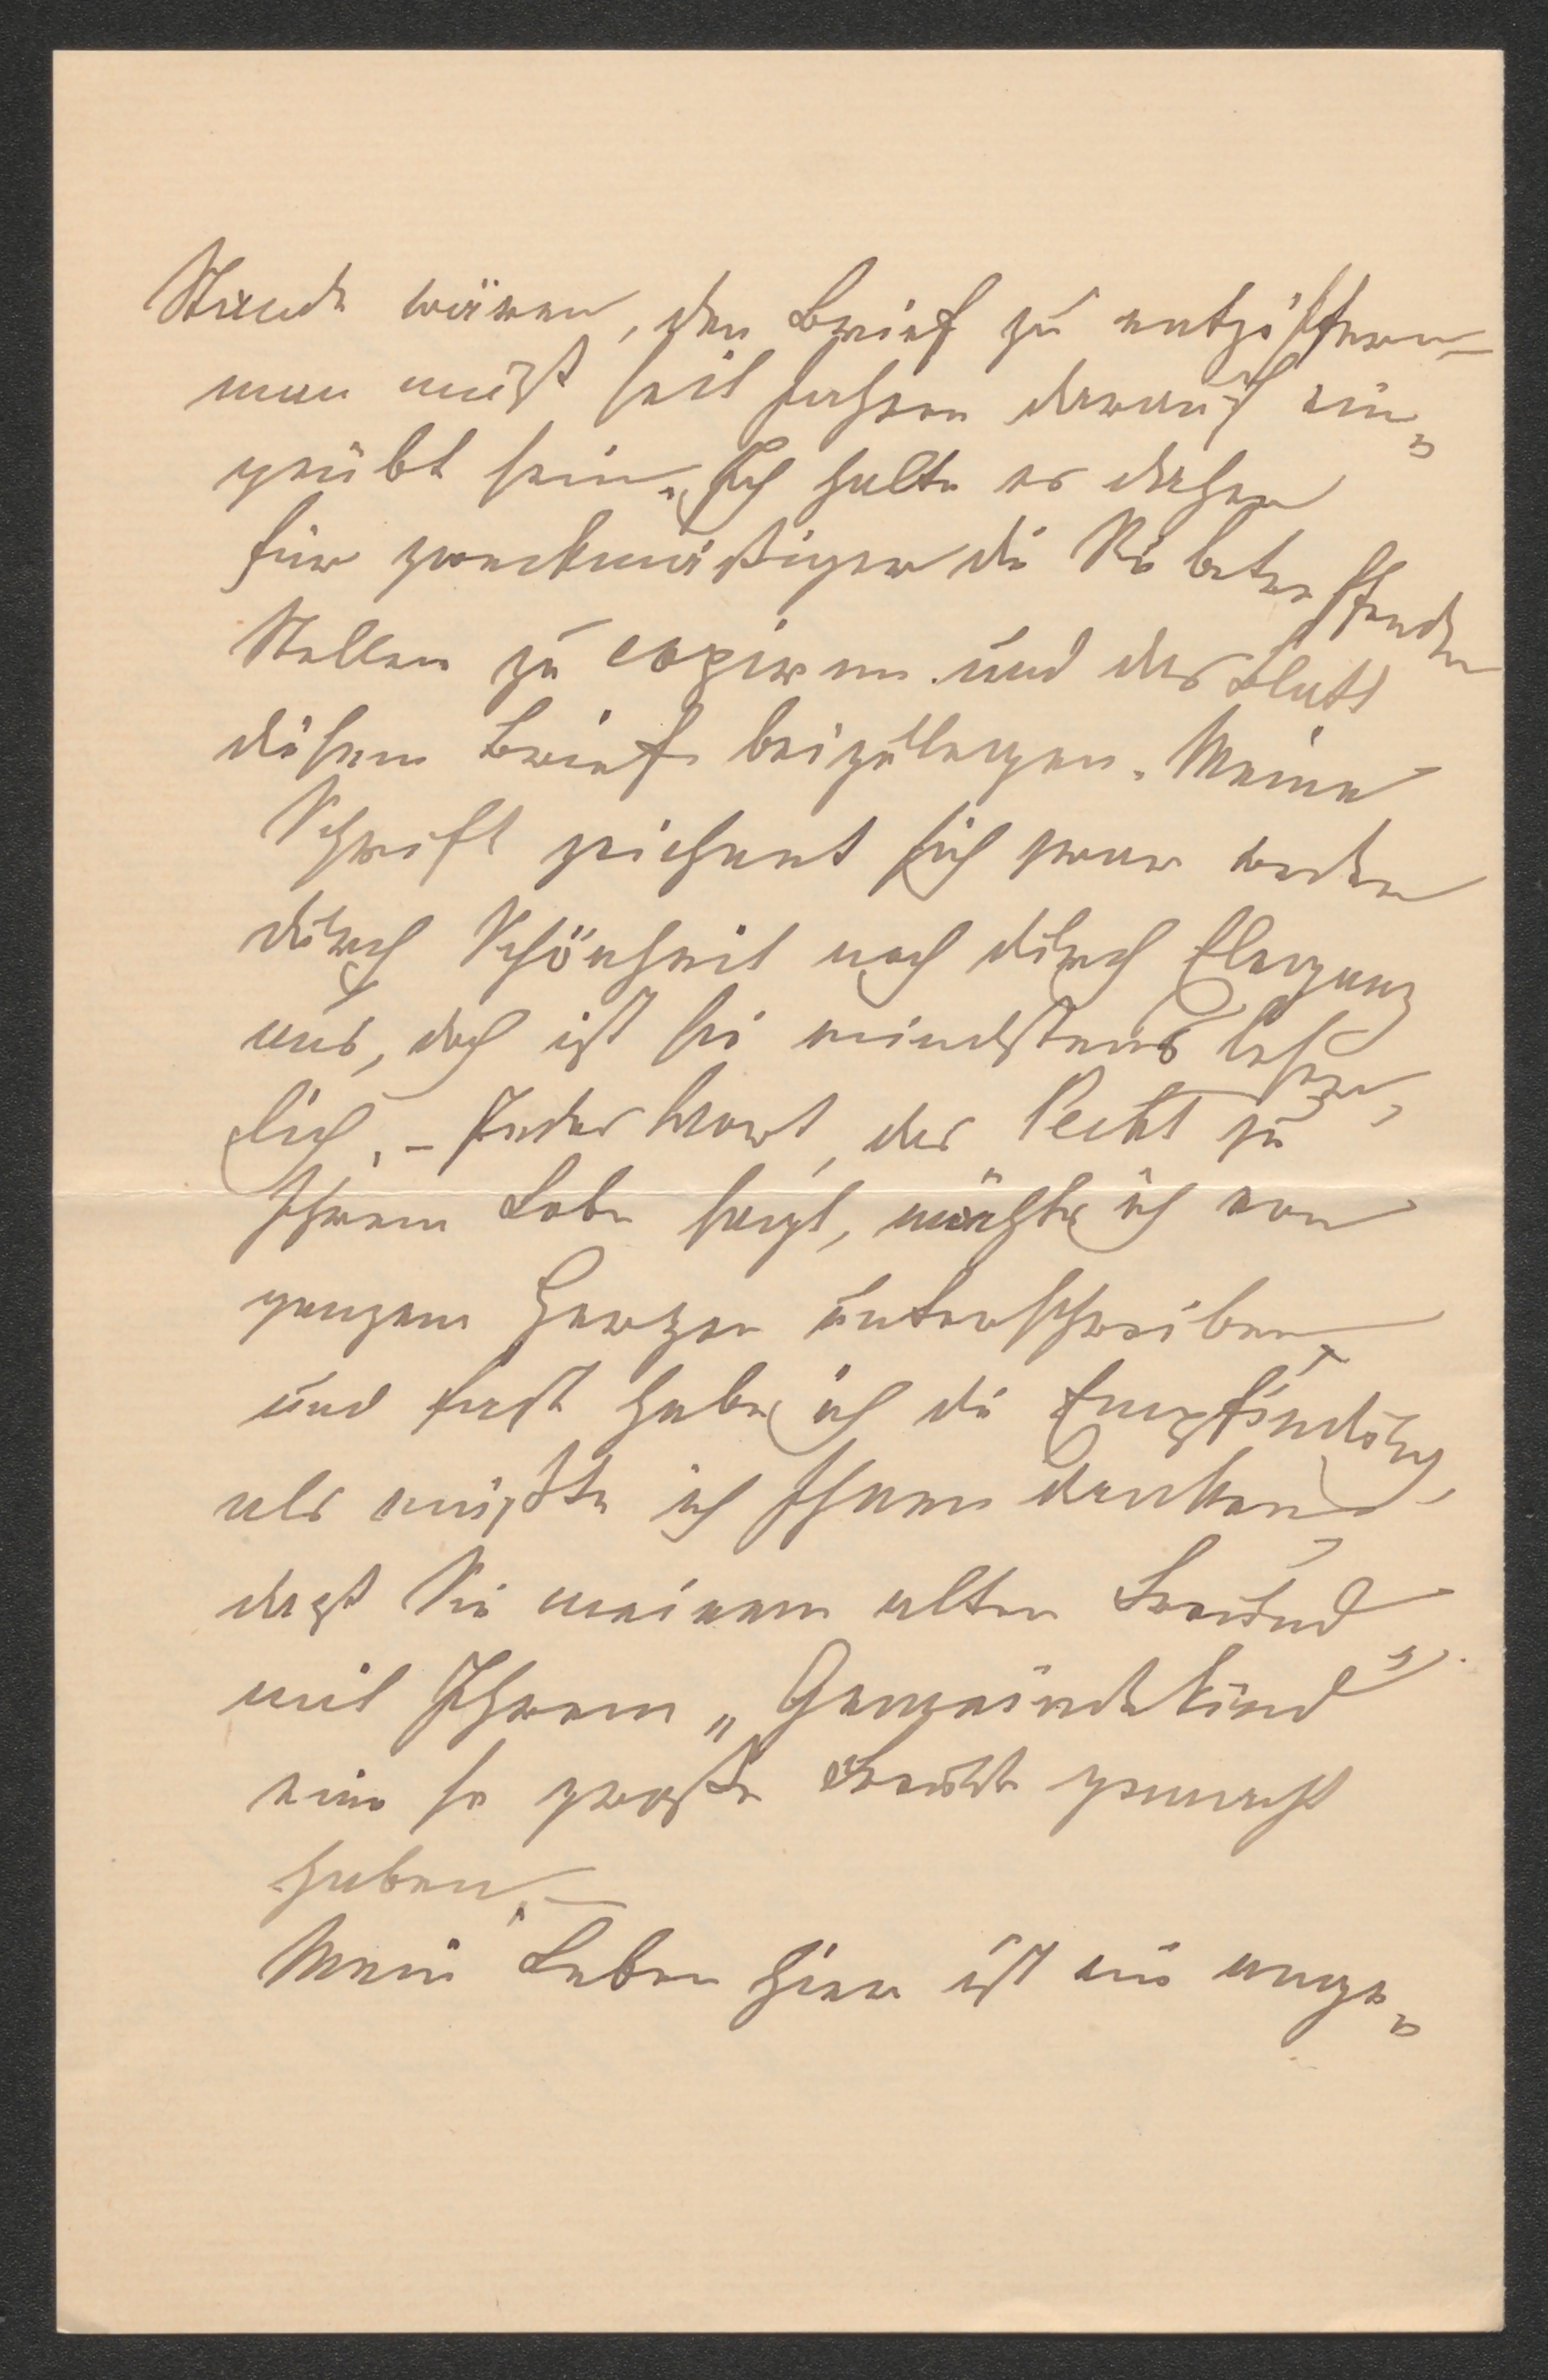 Stande wären, den Brief zu entziffern
man muß seit Jahren darauf ein„
geübt sein. Ich halte es daher
für zweckmäßiger die Sie betreffenden
Stellen zu copiren und das Blatt
diesem Briefe beizulegen. Meine
Schrift zeichnet sich zwar weder
durch Schönheit noch durch Eleganz
aus, doch ist sie mindestens leser„
lich. – Jedes Wort, das Pecht zu
Ihrem Lobe sagt, möchte ich von
ganzem Herzen unterschreiben,
und fast habe ich die Empfindung,
als müßte ich Ihnen danken,
daß Sie meinem alten Freund
mit Ihrem „Gemeindekind"
eine so große Freude gemacht
haben. –
Mein Leben hier ist ein ange„